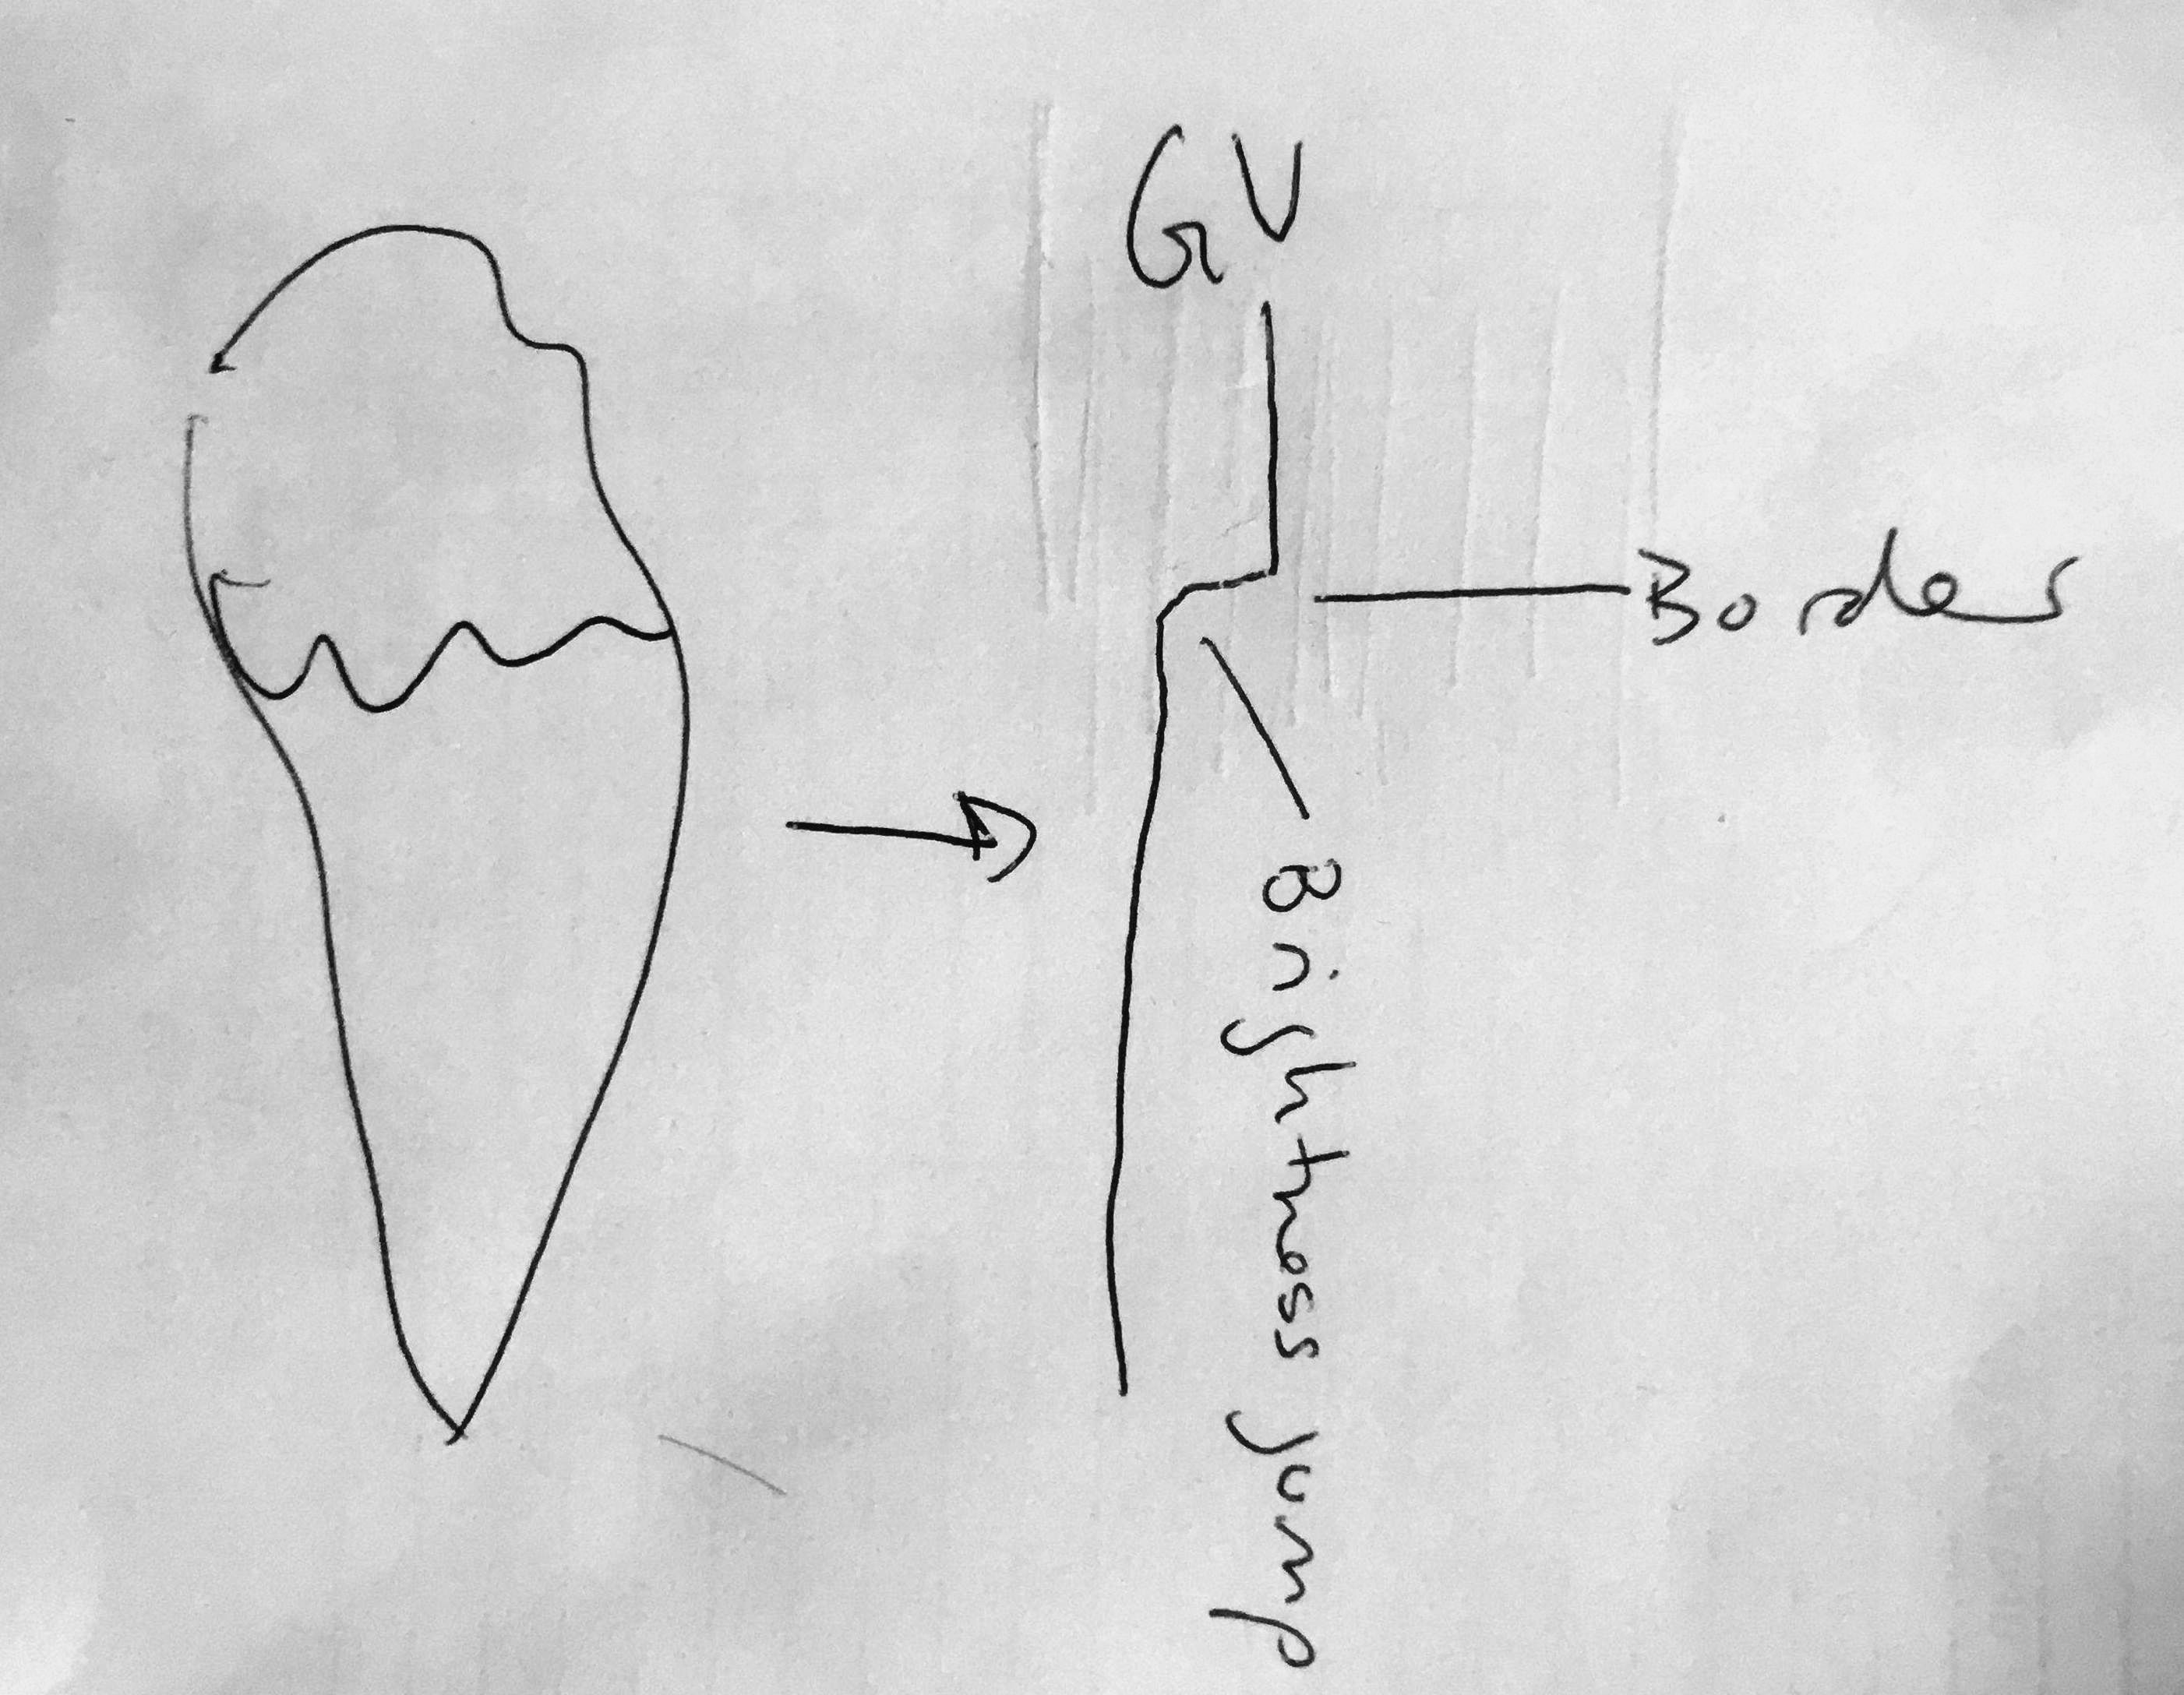 GV
Border
Brightness jump